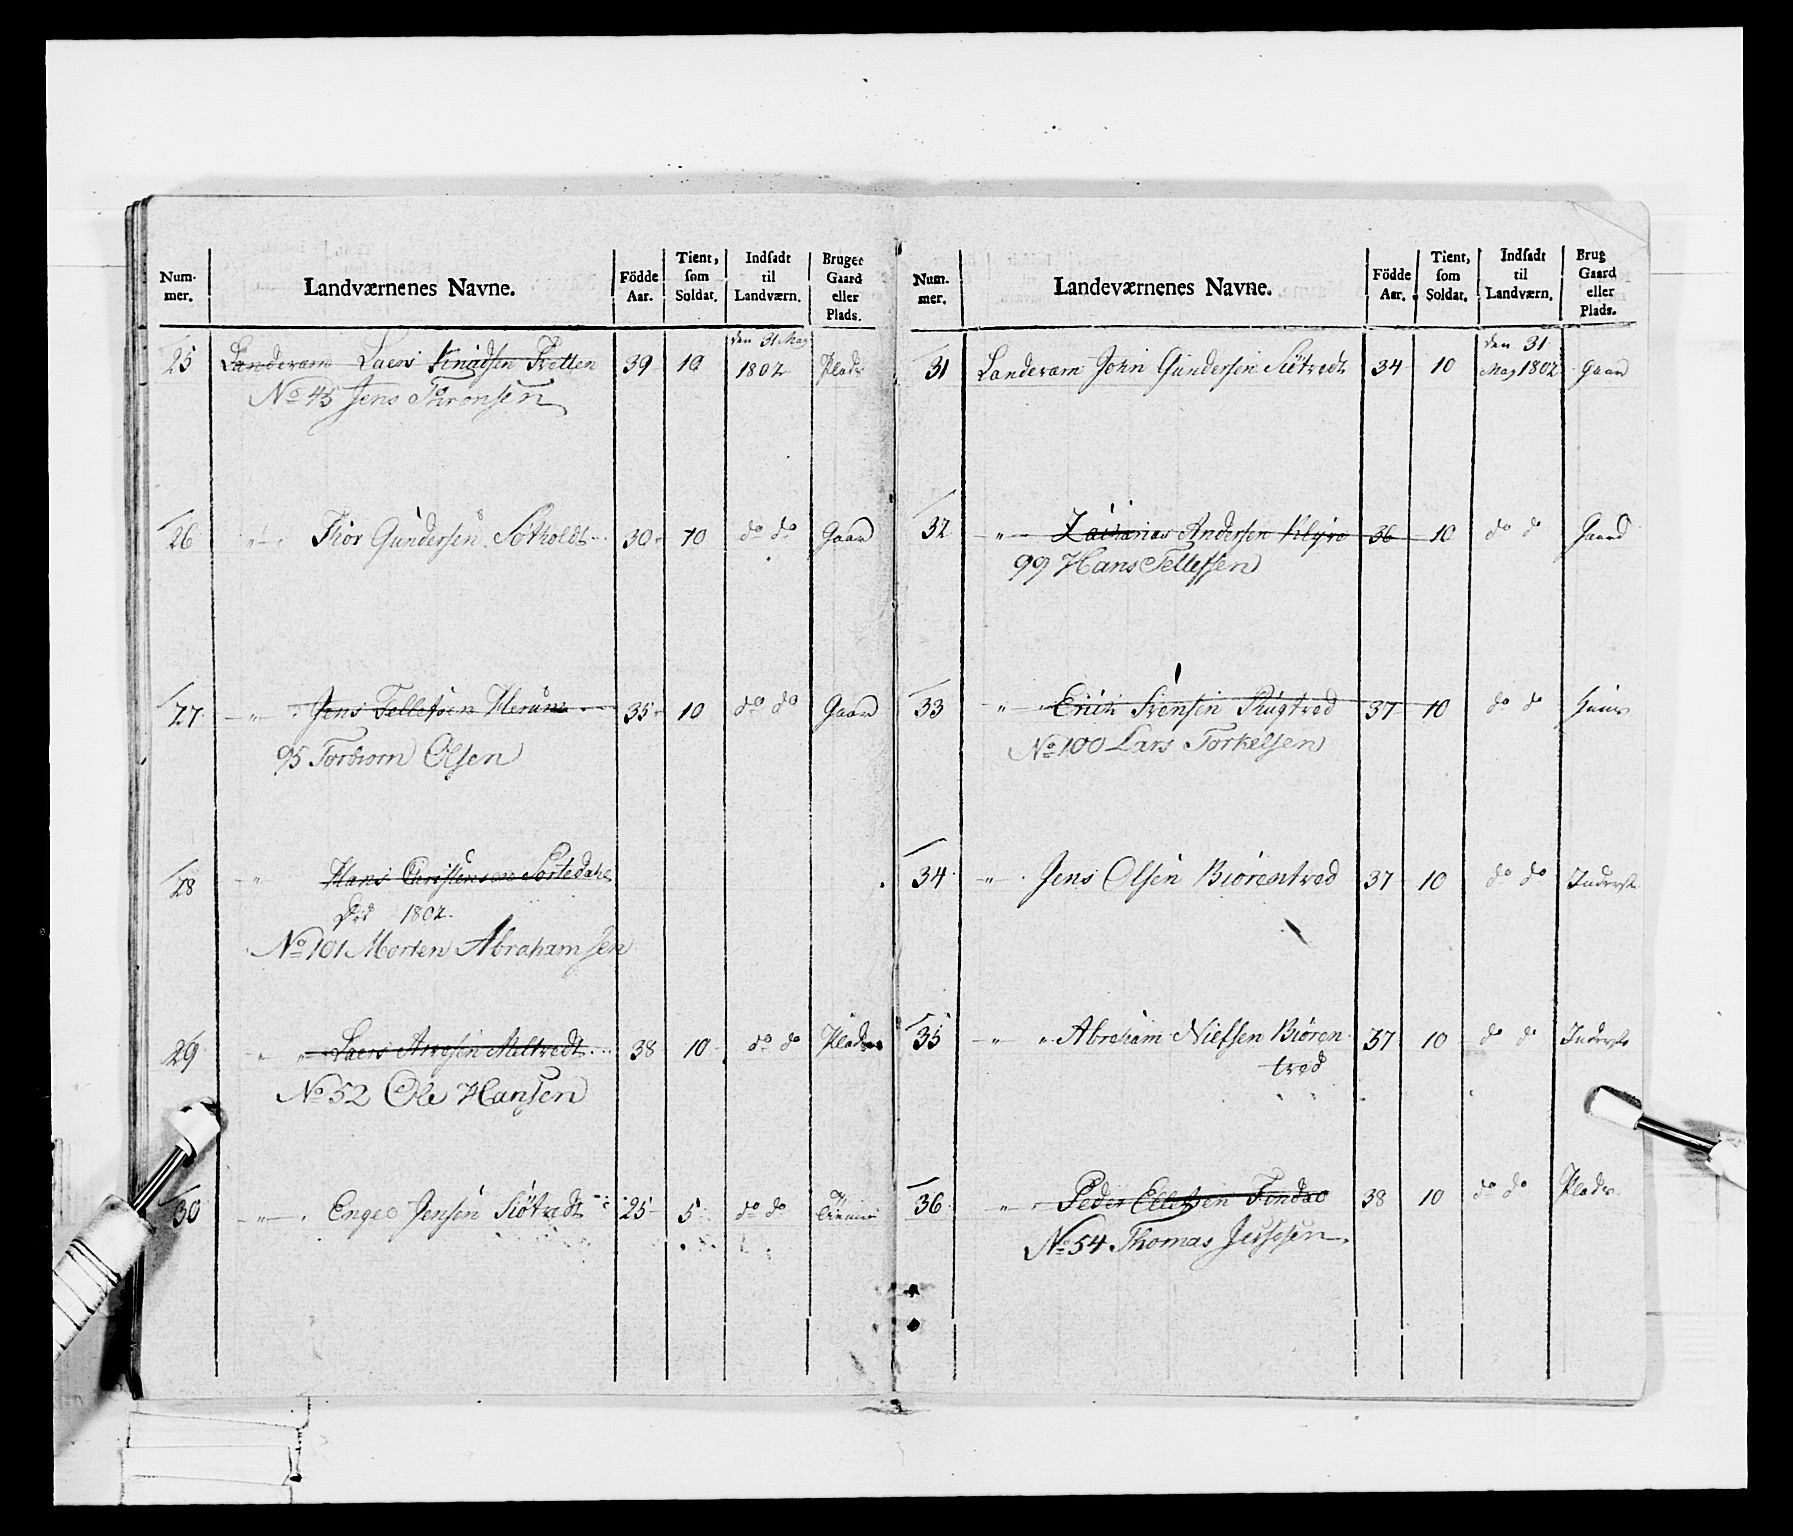 Num-
mer.
Landværnenes Navne.
Födde
Aar.
Tient,
som
Soldat.
Indsadt
til
Landværn.
Bruger
Gaard
eller
Plads.
25 Landeværn Laers Knudsen Tvetten 39 10 den 31 May 1802 Plads
No 45 Jens Thronsen
26 " Thor Gundersen Söfholdt 30 10 do do Gaard
27 " Jens Tellefsen Herum 35 10 do do Gaard
95 Torbiorn Olsen
28 " Hans Christensen Sortedahl
Död 1802.
No 101 Morten Abrahamsen
29 " " Laers Arvesen Meltvedt 38 10 do do Plads
No 52 Ole Hansen
30 " Engeo Jensen Siötvedt 25 5 do do
Num-
mer.
Landeværnenes Navne.
Födde
Aar.
Tient,
som
Soldat.
Indsadt
til
Landværn.
Brug
Gaard
eller
Plads.
31 Landeværn John Gundersen Siötvedt 34 10 den 31 May 1802 Gaard
32 " Zacharias Andersen Klyve 36 10 do do Gaard
99 Hans Tellefsen
33 " Erich Svensen Skugtved 37 10 do do Huus
No 100 Lars Torkelsen
34 " Jens Olsen Biörentved 37 10 do do Inderst
35 " " Abraham Nielsen Biören-
tved 37 10 do do Inderst
36 " Peder Ellefsen Findal 38 10 do do Plads
No 54 Thomas Jespsen